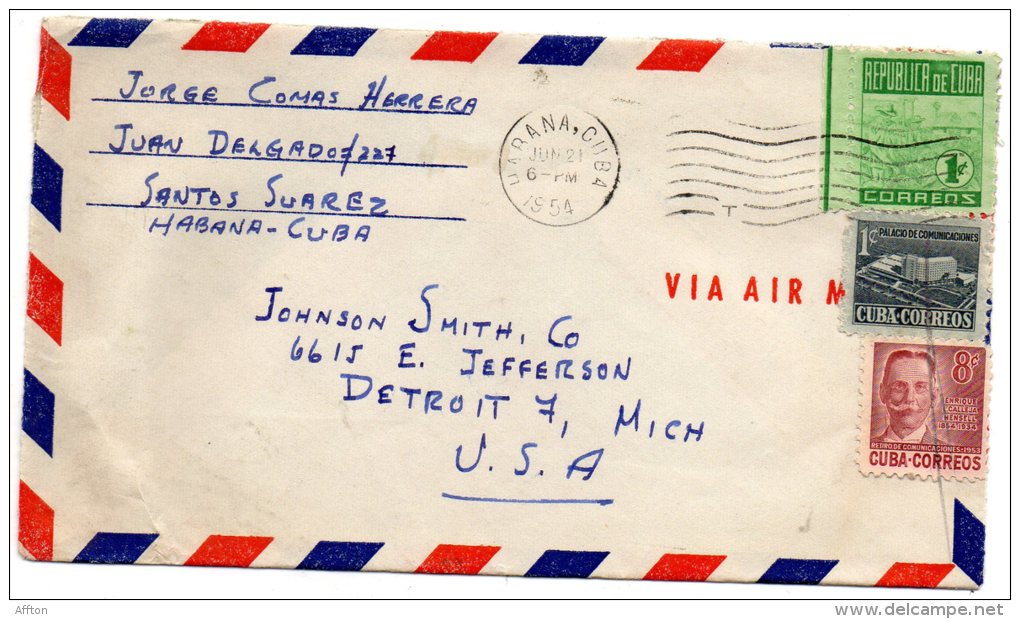 JORGE COMAS HERRERA
JUAN DELGADO #227
SANTOS SUAREZ
HABANA-CUBA
HABANA, CUBA
JUN 21
6-PM
1954
T
REPUBLICA DE CUBA
1¢
CORREOS
1¢ PALACIO DE COMUNICACIONES
CUBA·CORREOS
VIA AIR M
8¢
ENRIQUE
CALLEJA
HENSELL
1854 1934
RETIRO DE COMUNICACIONES·1953
CUBA·CORREOS
JOHNSON SMITH, CO
6615 E. JEFFERSON
DETROIT 7, MICH
U.S.A
Affton
delcampe.net